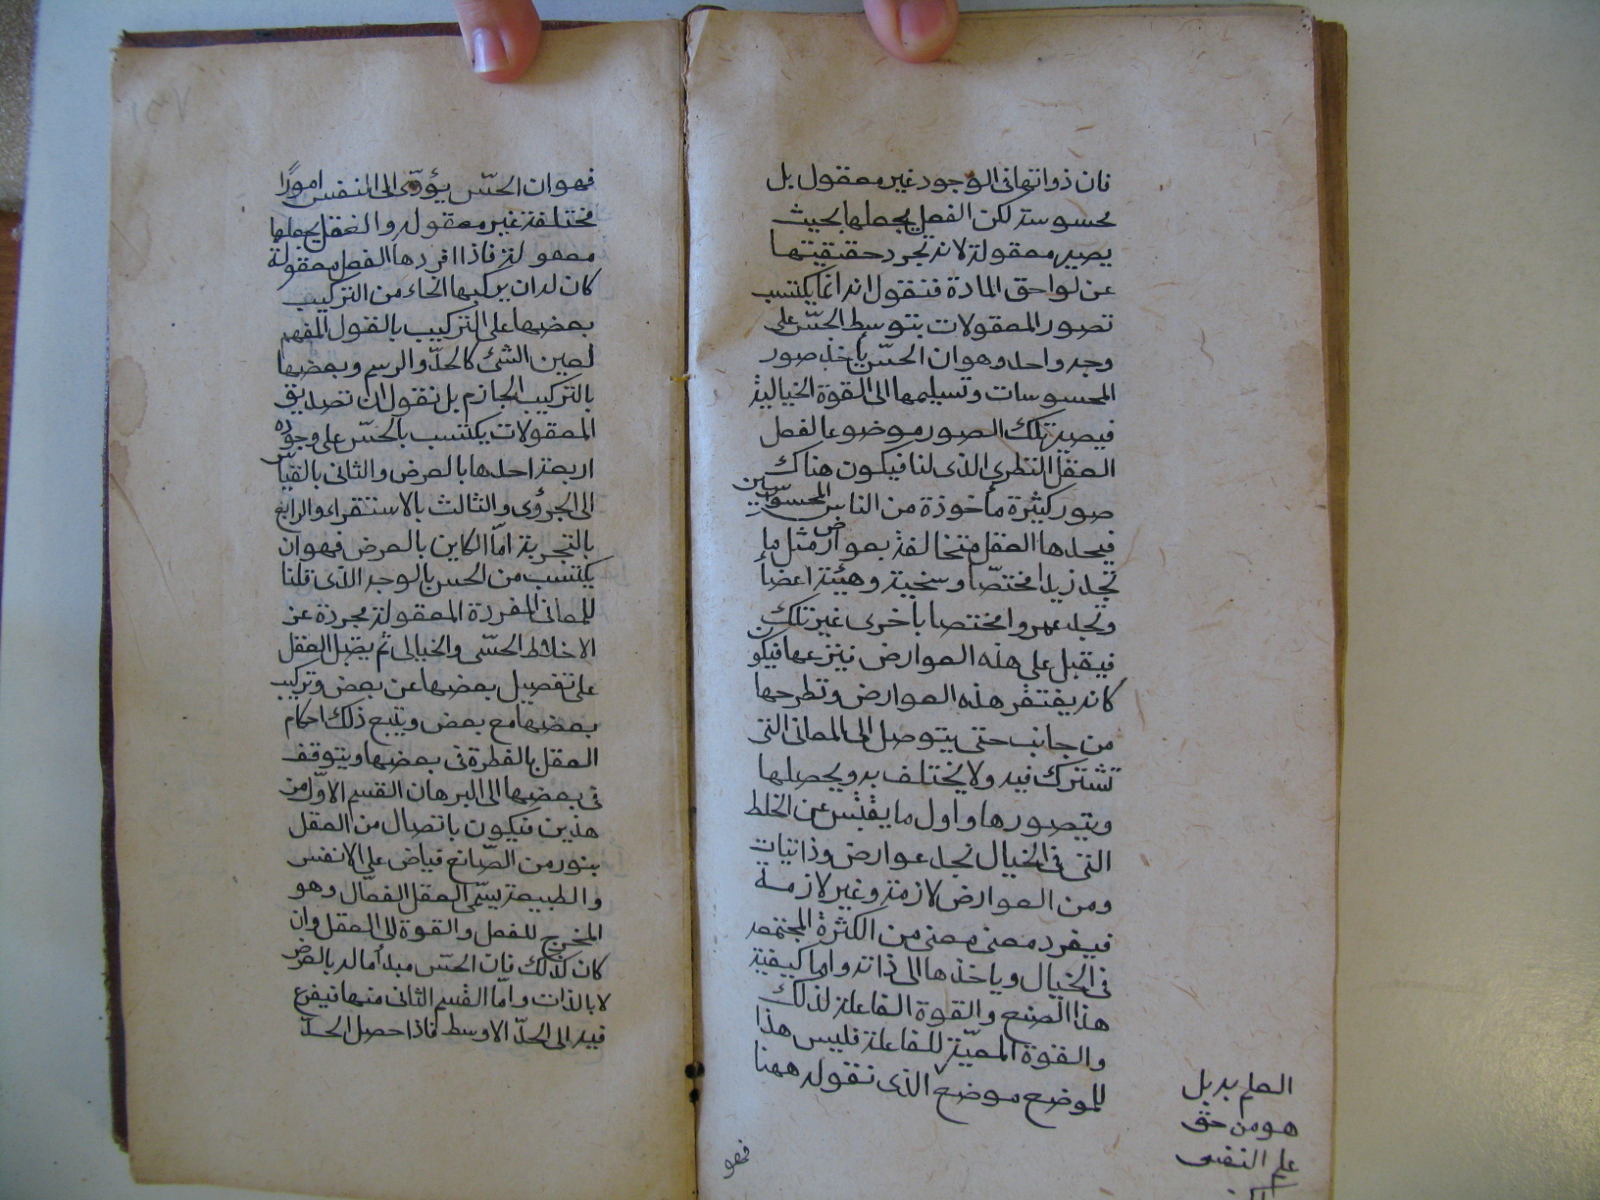 فان ذواتها فى الوجود غير معقول بل
محسوسة لكن الفعل يجعلها بحيث
يصير معقولة لانه تجرد حقيقتها
عن لواحق المادة فنقول انه انما يكتسب
تصور المعقولات بتوسط الحسّ على
وجه واحد وهو ان الحسّ يأخذ صور
المحسوسات وتسليمها الى القوة الخيالية
فيصير تلك الصور موضوعا لفعل
العقل النظرى الذى لنا فيكون هناك
صور كثيرة مأخوذة من الناس المحسوسين
فيجدها العقل متخالفة بعوارض مثل ما
تجد زيدا مختصّا وسخية وهيئة اعضا
وتجد عمروا مختصا باخرى غير تلك
فيقبل على هذه العوارض فينزعها فيكون
كانه يفتقر هذه العوارض وتطرحها
من جانب حتى يتوصل الى المعانى التى
تشترك فيه ولا يختلف به ويحصلها
ويتصورها واول ما يفتش عن الخلط
التى فى الخيال نجد عوارض وذاتيات
ومن العوارض لازمة وغير لازمة
فيفرد معنى معنى من الكثرة المجتمعة
فى الخيال وياخذها الى ذاته واما كيفية
هذا الصنع والقوة الفاعلة لذلك
والقوة المعيّنة للفاعلة فليس هذا
الموضع موضع الذى نقوله ههنا
فهو
العلم به بل
هو من حق
علم النفس
١٣٧
فهو ان الحسّ يؤدّى الى النفس امورًا
مختلفة غير معقوله والعقل يجعلها
معقولة فاذا افردها الفعل معقولة
كان له ان يركبها انحاء من التركيب
بعضها على التركيب بالقول المفهم
لعين الشئ كالحدّ والرسم وبعضها
بالتركيب الجازم بل نقول ان تصديق
المعقولات يكتسب بالحسّ على وجوه
اربعة احدها بالعرض والثانى بالقياس
الى الجزؤى والثالث بالاستقراء والرابع
بالتجربة امّا الكاين بالعرض فهو ان
يكتسب من الحس بالوجه الذى قلنا
للمعانى المفردة المعقولة مجردة عن
الاختلاط الحسّى والخيالى ثم يقبل العقل
على تفصيل بعضها عن بعض وتركيب
بعضها مع بعض ويتبع ذلك احكام
العقل بالفطرة فى بعضها ويتوقف
فى بعضها الى البرهان القسم الاوّل من
هذين فيكون باتصال من العقل
بنور من الصّانع فياض على الانفس
والطبيعة يسمّى العقل الفعال وهو
المخرج للفعل والقوة الى العقل وان
كان كذلك فان الحسّ مبدأ ما له بالعرض
لا بالذات وامّا القسم الثانى منها فيفزع
فيه الى الحدّ الاوسط فاذا حصل الحدّ